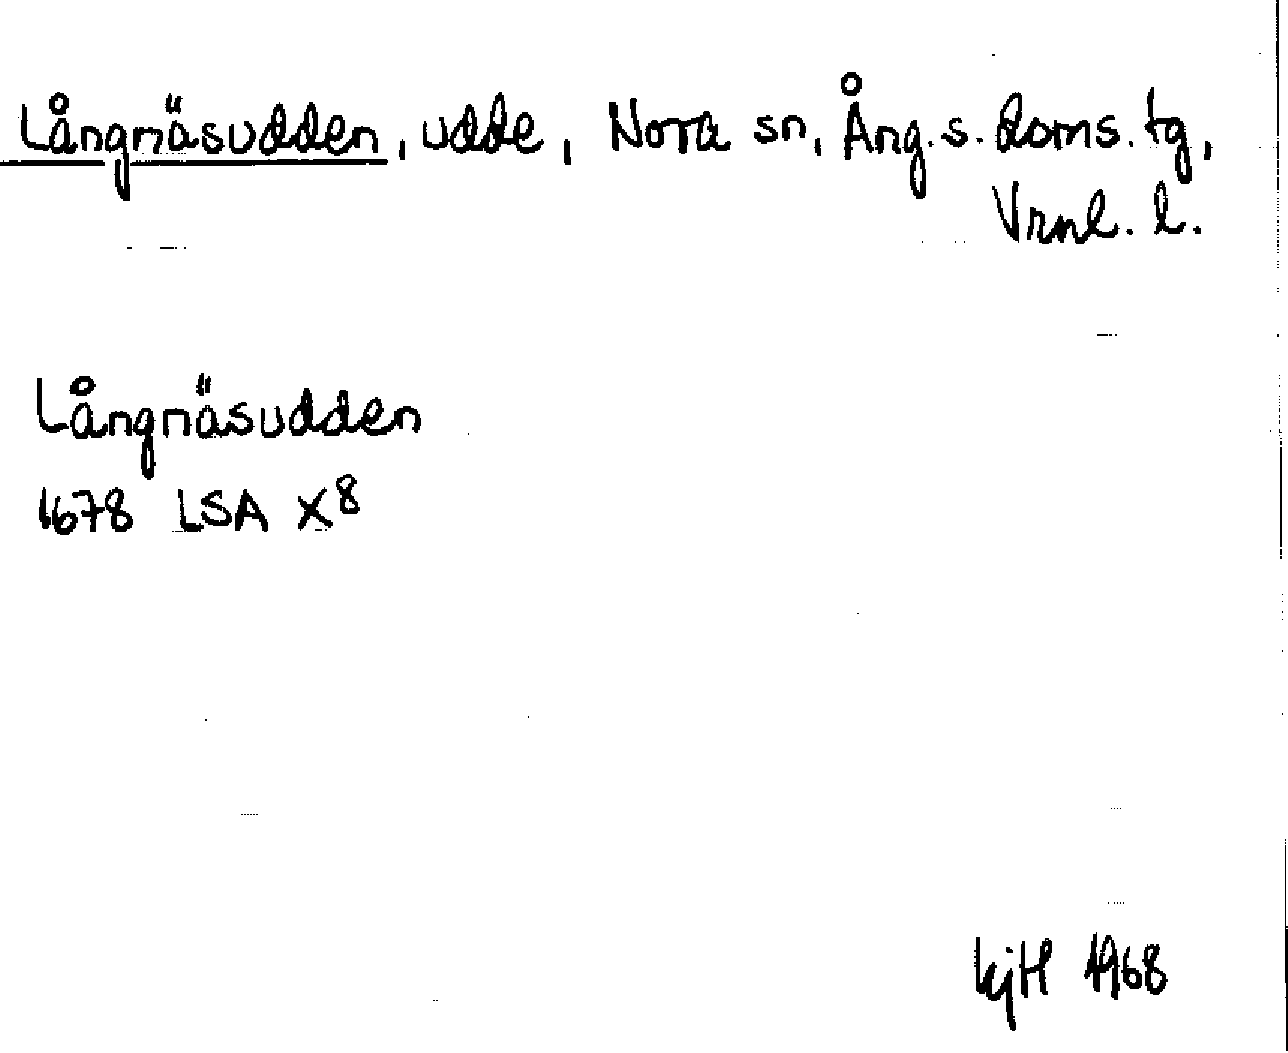 Långnäsudden, udde, Nora sn, Ång. s. doms. tg,
Vrnl. l.
Långnäsudden
1678 LSA X8
1968